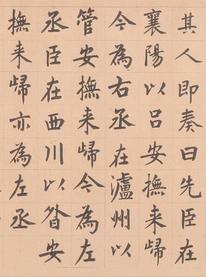 其人即奏曰先臣在
襄陽以呂安撫来歸
今為右丞在瀘州以
管安撫来歸今為左
丞臣在西川以昝安
撫来歸亦為左丞